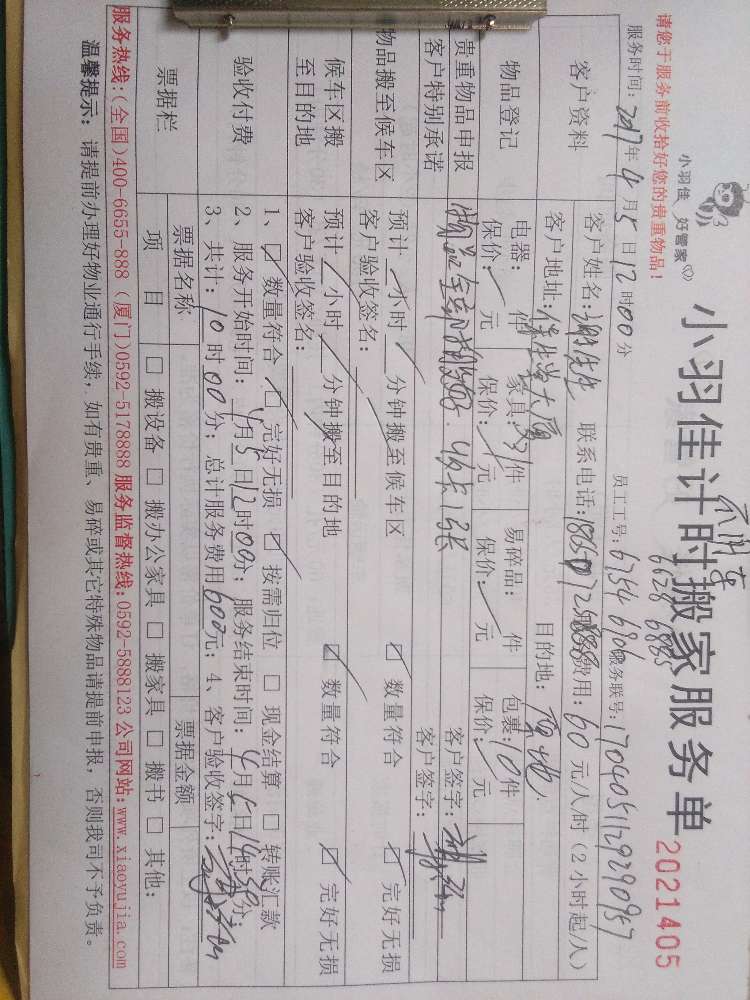 小羽佳 好管家
小羽佳计时搬家服务单
2021405
请您于服务前收拾好您的贵重物品！
6628 6885
服务时间：2017年4月5日12时00分 员工工号：6754 6906 服务联号：17040511290957
客户资料
客户姓名：谢先生 联系电话： 费用：60元/人/时（2小时起/人）
客户地址：大厦 目的地：
物品登记
电器： 件 家具： 件 易碎品： 件 包裹：10件
保价： 元 保价： 元 保价： 元 保价： 元
贵重物品申报
客户特别承诺
客户签字：
客户签字：
物品搬至候车区
预计 小时 分钟搬至候车区 ☑ 数量符合 ☑ 完好无损
客户验收签名：
候车区搬至目的地
预计 小时 分钟搬至目的地 ☑ 数量符合 ☑ 完好无损
客户验收签名：
验收付费
1、☑ 数量符合 ☑ 完好无损 ☑ 按需归位 □ 现金结算 □ 转账汇款
2、服务开始时间：4月5日12时00分；服务结束时间：4月5日14时 分；
3、共计：10时00分；总计服务费用600元；4、客户验收签字：
票据栏
票据名称 票据金额
项目 □ 搬设备 □ 搬办公家具 □ 搬家具 □ 搬书 □ 其他：
服务热线：(全国)400-6655-888 (厦门)0592-5178888 服务监督热线：0592-5888123 公司网站：www.xiaoyujia.com
温馨提示：请提前办理好物业通行手续，如有贵重、易碎或其它特殊物品请提前申报，否则我司不予负责。